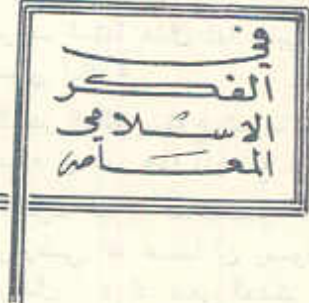 في
الفكر
الاسلامي
المعاصر